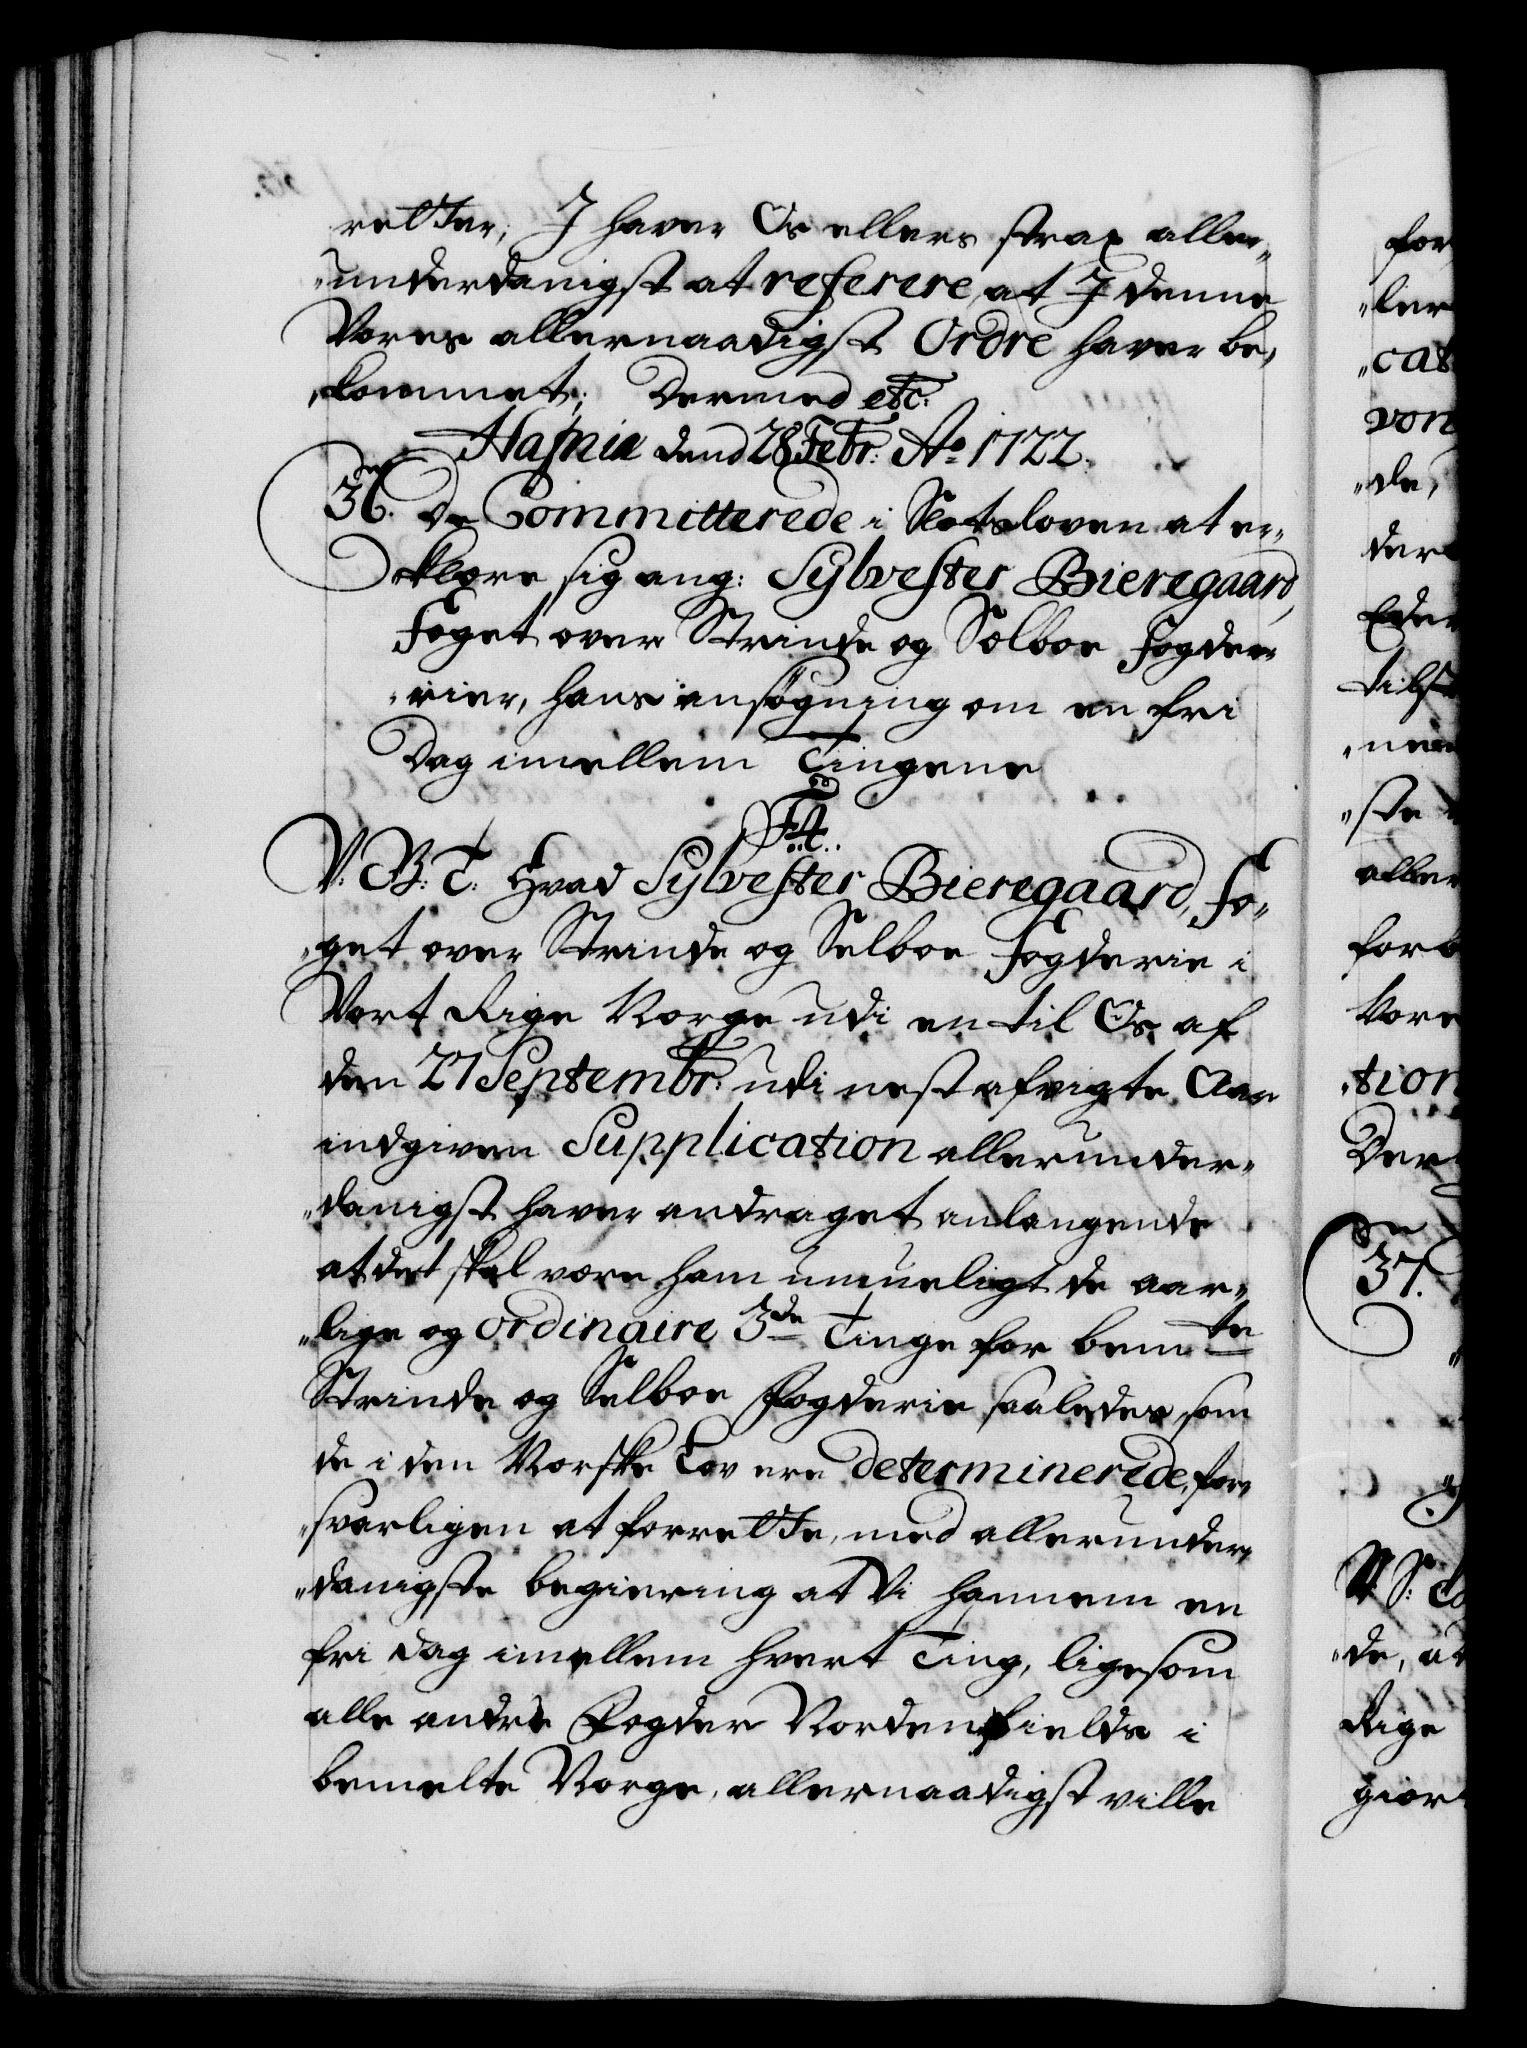 retter, I haver Os ellers strax aller„
„underdanigst at referere, at I denne
Vores allernaadigst Ordre haver be„
„kommet; Dermed etc:
Hafniæ dend 28 Febr: Ao 1722.
36. De Committerede i Slotsloven at er„
„klære sig ang: Sylvester Bieregaard,
Foget over Strinde og Selboe Fogde„
„rier, hans ansøgning om en fri
Dag imellem Tingene
F4.
V: B: T: Hvad Sylvester Bieregaard, Fo„
„get over Strinde og Selboe Fogderie i
Vort Rige Norge udi en til Os af
den 27 Septembr: udi nest afvigte Aar
indgiven Supplication allerunder„
„danigst haver andraget anlangende
at det skal være ham umueligt de aar„
„lige og ordinaire 3de Tinge for bemte
Strinde og Selboe Fogderie saaledes, som
de i den Norske Lov ere determinerede, for„
„svarligen at forrette, med allerunder„
„danigste begiering at Vi hannem en
fri dag imellem hvert Ting, ligesom
alle andre Fogder Nordenfields i
bemelte Norge, allernaadigst ville
for
„ler
„cat
von
„de,
der
Eder
tilst
„nem
„ste
aller
forb
Vore
„tion
Der
37.
V. S: Ed
„de, at
Rige
giort